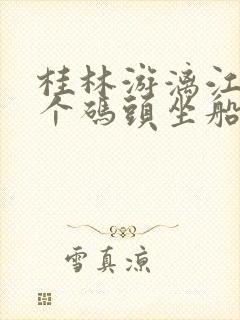 桂林游漓江
个碼頭坐船
雪真凉